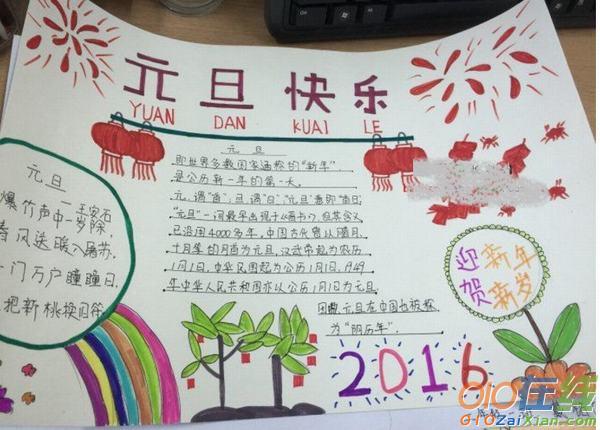 元旦快乐
YUAN DAN KUAI LE
元旦
即世界多数国家通称的"新年"，
是公历新一年的第一天。
元，谓"首"；旦，谓"日"；"元旦"意即"首日"
"元旦"一词最早出现于《晋书》，但其含义
已沿用4000多年，中国古代曾以腊月、
十月等的月首为元旦，汉武帝起为农历
1月1日，中华民国起为公历1月1日，1949
年中华人民共和国亦以公历1月1日为元旦
因此，元旦在中国也被称
为"阳历年"。
元旦
王安石
爆竹声中一岁除，
春风送暖入屠苏.
门万户瞳瞳日，
把新桃换旧符
迎新年
贺新岁
2016
010在线
010ZaiXian.com